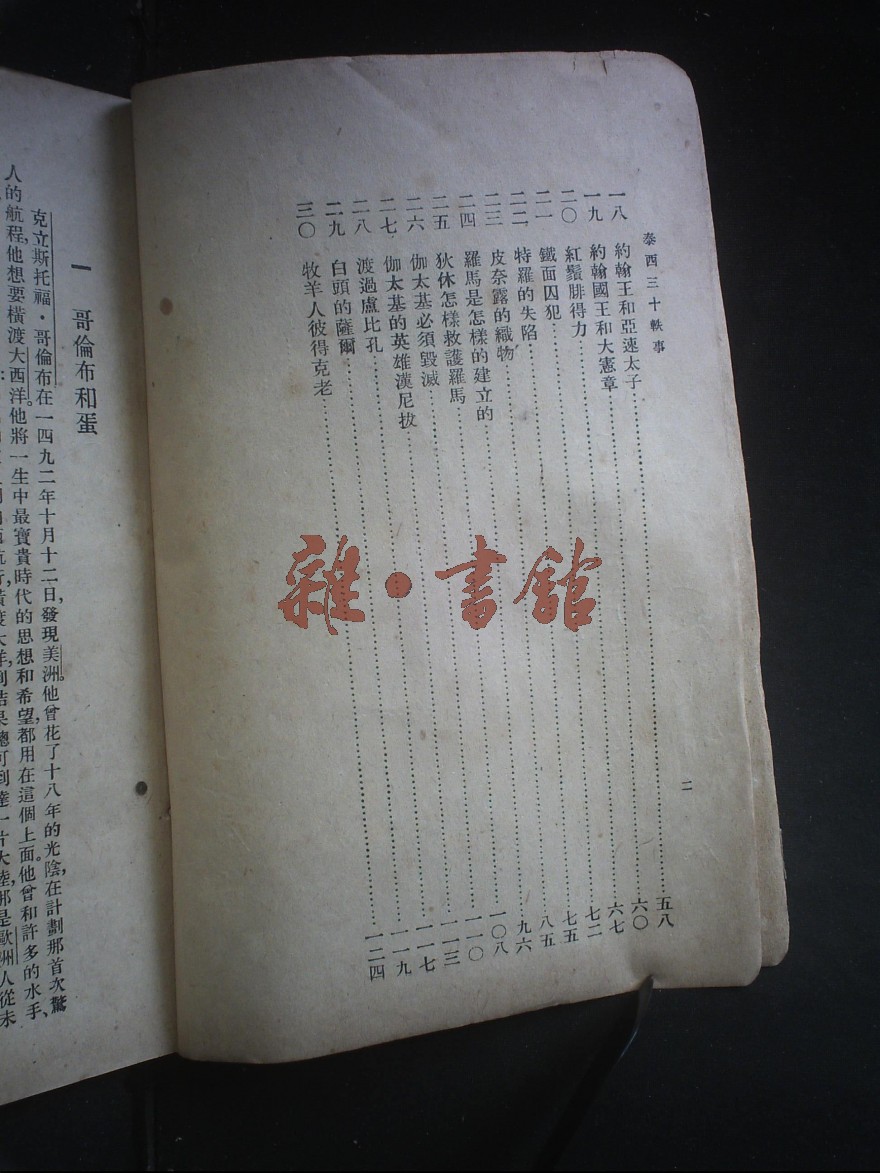 泰西三十軼事
一八 約翰王和亞速太子……五八
一九 約翰國王和大憲章……六〇
二〇 紅鬍腓得力……六七
二一 鐵面囚犯……七二
二二 特羅的失陷……七五
二三 皮奈露的織物……八五
二四 羅馬是怎樣的建立的……九六
二五 狄休怎樣救護羅馬……一〇八
二六 伽太基必須毀滅……一一〇
二七 伽太基的英雄漢尼拔……一一三
二八 渡過盧比孔……一一七
二九 白頭的薩爾……一一九
三〇 牧羊人彼得克老……一二四
二
雜·書舘
一 哥倫布和蛋
克立斯托福·哥倫布在一四九二年十月十二日,發現美洲。他曾花了十八年的光陰,在計劃那首次驚
人的航程,他想要橫渡大西洋。他將一生中最寶貴時代的思想和希望,都用在這個上面。他曾和許多的水手、
橫渡大洋,到結果總可到達一片大陸,那是歐洲人從未